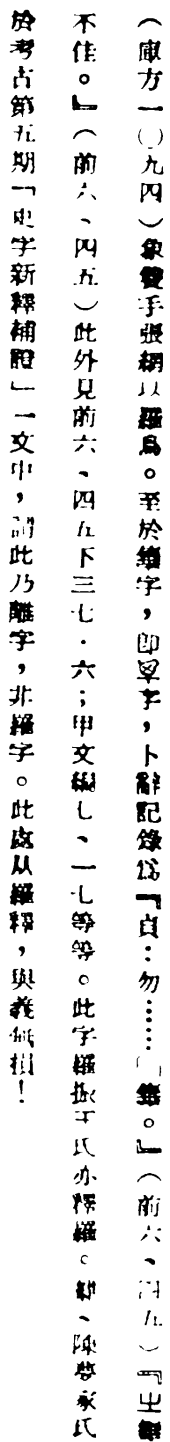 (庫方一〇九四)象雙手張網以羅鳥。至於字,即字,卜辭記錄為『貞:勿……。』(前六、四五)『㞢
不佳。』(前六、四五)此外見前六、四五下三七.六;甲文編七、一七等等。此字羅振玉氏亦釋羅。郭、陳夢家氏
於考古第五期「史字新釋補證」一文中,謂此乃離字,非羅字。此處从羅釋,與義無損!